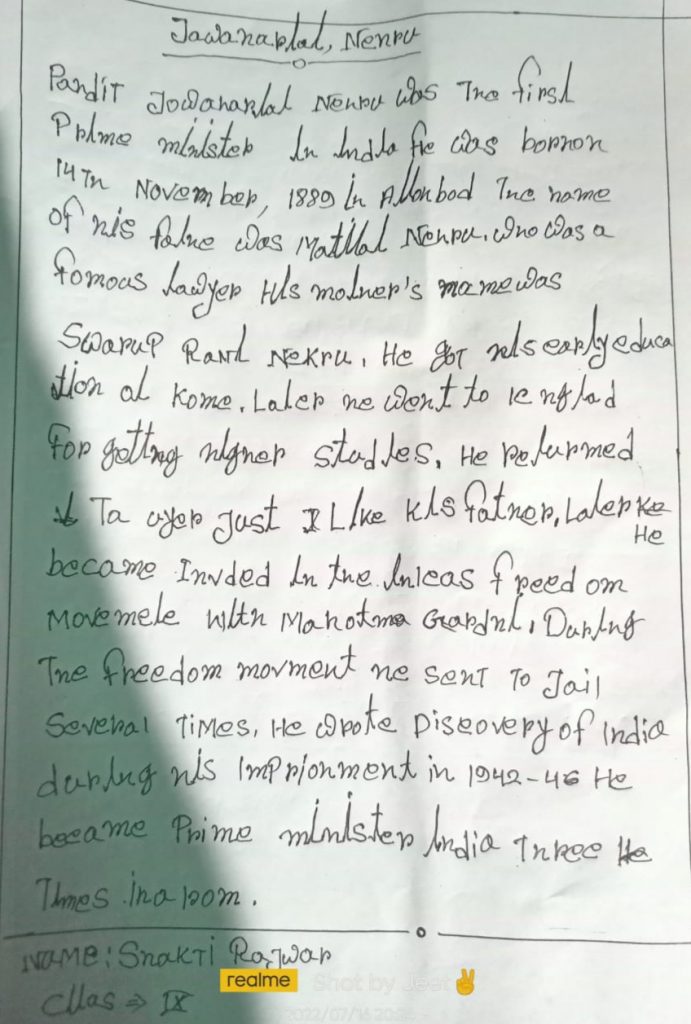 Jawanaplal, Nenru
Pandit Jowananlal Nenru was The first
Prime minister in India he was bornon
14Tn November, 1889 in Allanbod Tne name
of nis Falne was Matilal Nenru. who was a
fomous lawyer His motner's mame was
Swarup Rani Nekru, He got nis early educa
tion al Kome. Laler ne went to englad
For getting nigner studies, He returmed
Ta wyer Just Like Kis fatner, Later Ke
He
became Invded in tne Inleas freedom
Movemele witn Manotma Gandni, During
Tne freedom movment ne sent To Jail
Several Times, He wrote Diseovery of India
during nis Imprionment in 1942-46 He
beeame Prime minister India Tnree He
Times in a rom.
NAME: Snakti Rajwar
Cllas ⇒ IX
realme Shot by Jeet✌
2022/07/16 20:26